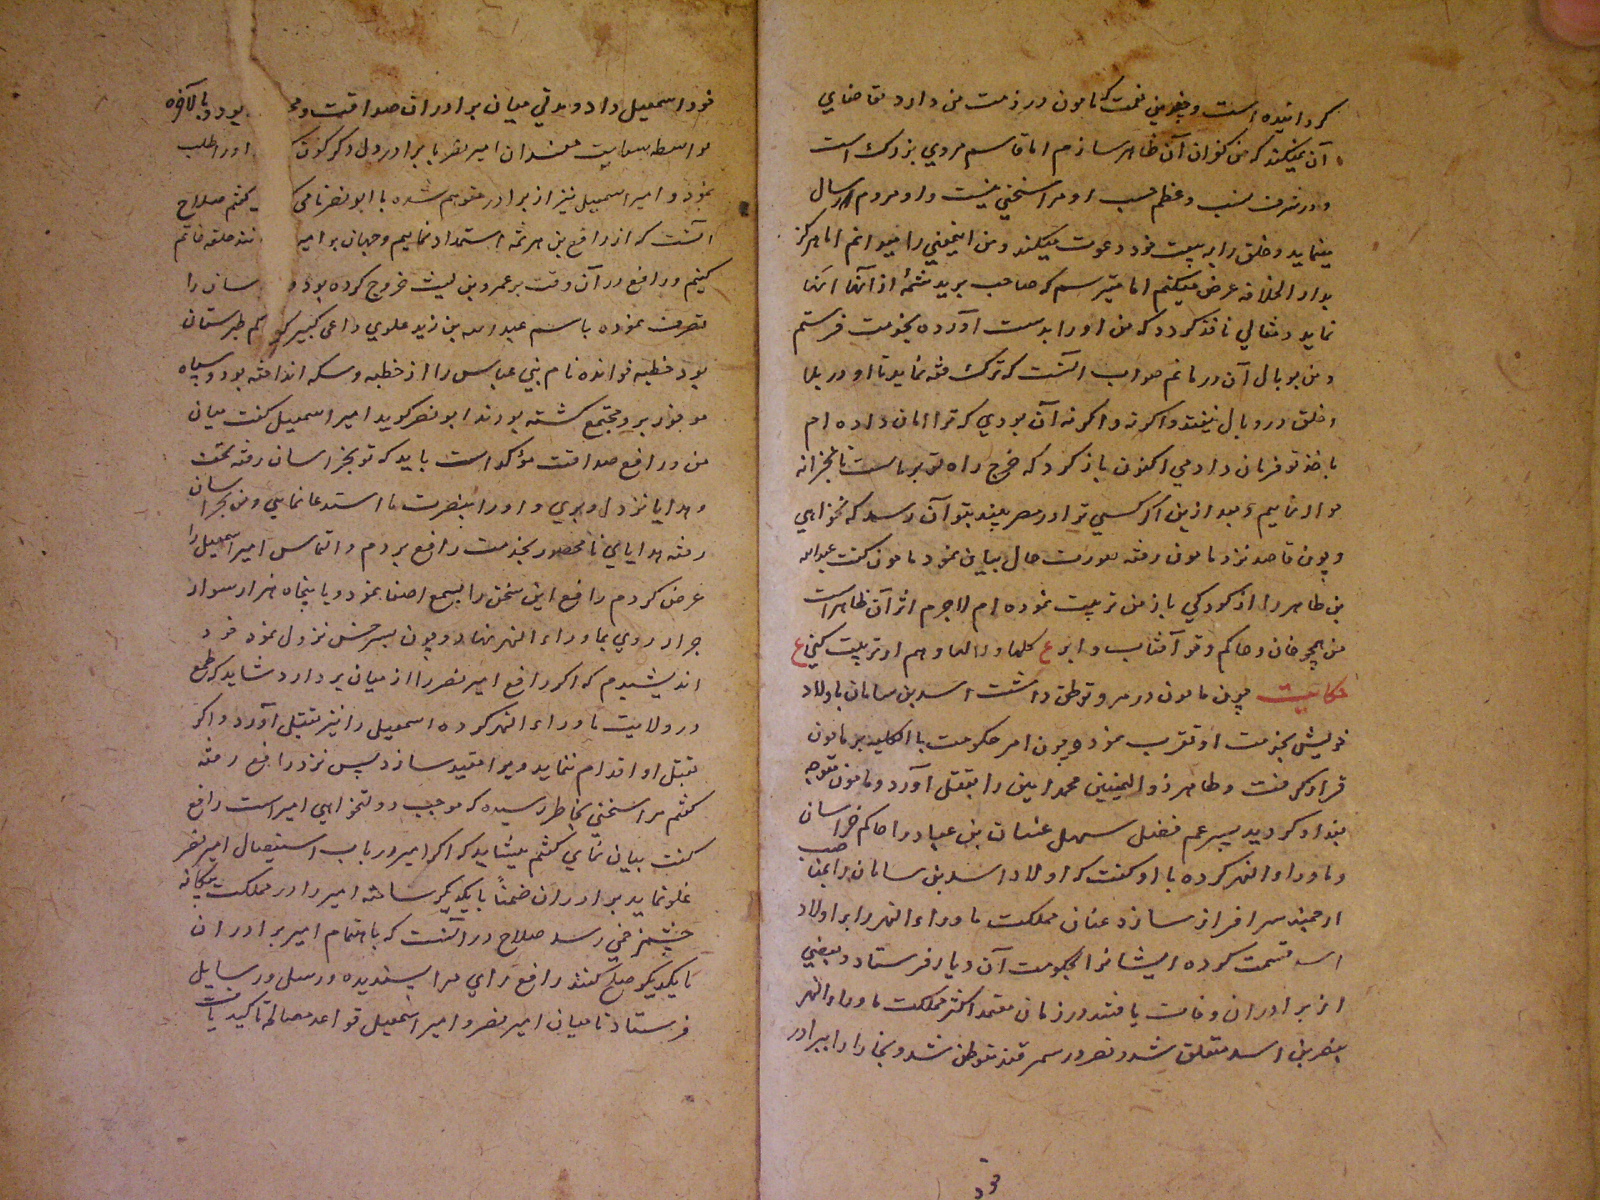 کردانیده است و چنین نعمت که مامون در ذمت من دارد تقاضای
آن نمیکند که من کفران آن ظاهر سازم اما قاسم مردی بزرک است
و در شرف نسب و عظم حسب او مرا سخنی نیست و او مردم ارسال
مینماید و خلق را به بیعت خود دعوت میکند و من اینمعنی را میدانم اما هرکز
بدار الخلافه عرض نمیکنم اما میترسم که صاحب برید شمهٔ از آن انها
نماید و مثالی نافذ کردد که من او را بدست آورده بخدمت فرستم
و من بوبال آن در مانم صواب آنست که ترک فتنه نماید تا او در بلا
و خلق در وبال نیفتند و اکر نه آن بودی که ترا امان داده ام
باخذ تو فرمان دادمی اکنون باز کرد که خرج راه تو بر ماست تا بخزانه
حواله نماییم و بعد ازین اکر کسی ترا در مصر بیند بتو آن رسد که نخواهی
و چون قاصد نزد مامون رفته صورت حال بیان نمود مامون کفت عبدالله
بن طاهر را از کودکی باز من تربیت نموده ام لاجرم اثر آن ظاهر است
من همچو خان و حاکم و تو آفتاب و ابر ع کلها و لالها دهم ار تربیت کنی ع
حکایت چون مامون در مرو توطن داشت اسد بن سامان با اولاد
خویش بخدمت او تقرب نمود و چون امر حکومت بالکلیه بر مامون
قرار کرفت و طاهر ذوالیمینین محمد امین را بقتل آورد و مامون متوجه
بغداد کردید پسر عم فضل سهل غسان بن عباد را حاکم خراسان
و ماوراء النهر کرده با او کفت که اولاد اسد بن سامان را بمناصب
ارجمند سرافراز سازد غسان مملکت ماوراء النهر را بر اولاد
اسد قسمت کرده ایشانرا بحکومت آن دیار فرستاد و بعضی
از برادران وفات یافتند در زمان معتمد اکثر مملکت ماوراء النهر
بنصر بن اسد متعلق شد و نصر در سمرقند متوطن شد و بخارا را ببرادر
خود اسمعیل داد و مدتی میان برادران صداقت و بود و بالآخره
بواسطه سعایت مفسدان امیر نصر با برادر دل دکرکون او را طلب
نمود و امیر اسمعیل نیز از برادر متوهم شده با ابو نصر نامی کفتم صلاح
آنست که از رافع بن هرثمه استمداد نماییم و جهان بر امیر حلقه خاتم
کنیم و رافع در آن وقت بر عمرو بن لیث خروج کرده بود و سان را
تصرف نموده باسم عبدالله بن زید علوی داعی کبیر که حاکم طبرستان
بود خطبه خوانده نام بنی عباس را از خطبه و سکه انداخته بود و سپاه
موفور برو مجتمع کشته بودند ابو نصر کوید امیر اسمعیل کفت میان
من و رافع صداقت مؤکد است باید که تو بخراسان رفته تحف
و هدایا نزد او بری و او را بنصرت ما استدعا نمایی و من بخراسان
رفته هدایای نامحصور بخدمت رافع بردم و التماس امیر اسمعیل را
عرض کردم رافع این سخن را بسمع اصغا نمود و با پنجاه هزار سوار
جرار روی بماوراء النهر نهاد و چون بسرخس نزول نمود خود
اندیشیدم که اکر رافع امیر نصر را از میان بردارد شاید که طمع
در ولایت ماوراء النهر کرده اسمعیل را نیز بقتل آورد و اکر
بقتل او اقدام ننماید ویرا مقید سازد پس نزد رافع رفته
کفتم مرا سخنی بخاطر رسیده که موجب دولتخواهی امیر است رافع
کفت بیان نمای کفتم میشاید که اکر امیر در باب استیصال امیر نصر
غلو نماید برادران ضمناً با یکدیکر ساخته امیر را در مملکت بیکانه
چشم زخمی رسد صلاح در آنست که باهتمام امیر برادران
با یکدیکر صلح کنند رافع رای مرا پسندیده و رسل و رسایل
فرستاد تا میان امیر نصر و امیر اسمعیل قواعد مصالحه تاکید یافت